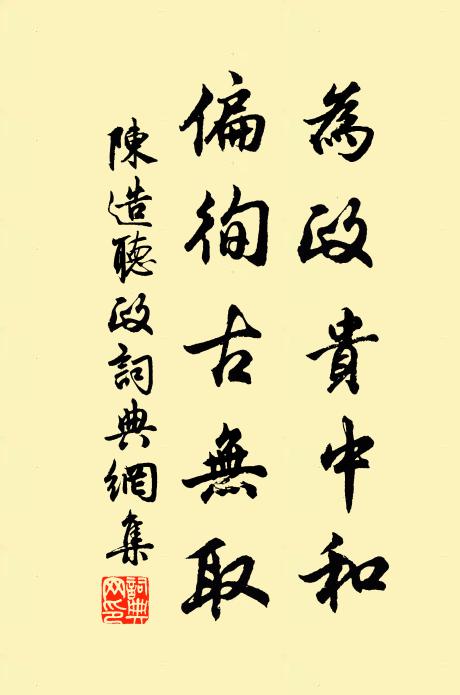 為政貴中和
偏徇古無取
陳造聽政詞典網集
詞典網印